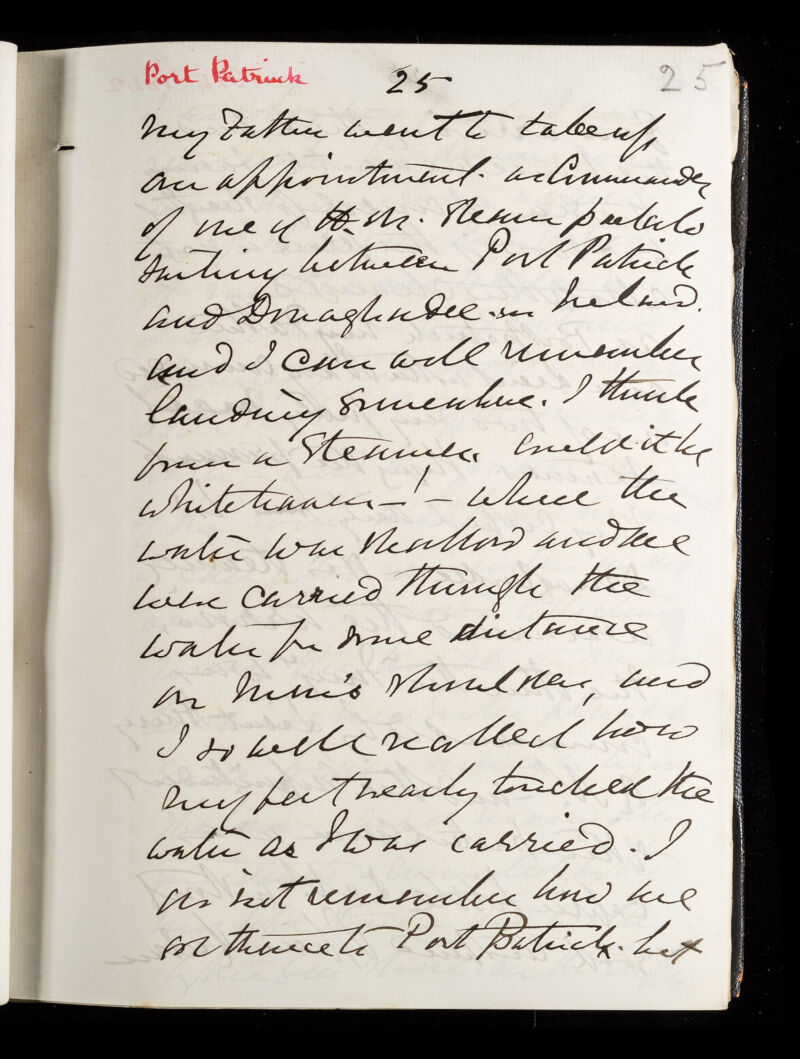 Port Patrick 25 25
my Father went to take up
an appointment as Commander
of one of H.M. Steam packets
sailing between Port Patrick
and Donaghadee in Ireland.
and I can well remember
landing somewhere. I think
from a Steamer. Could it be
whitehaven – ! – where the
water was shallow and we
were carried through the
water for some distance
on men's shoulders, and
I so well recollect how
my feet nearly touched the
water as I was carried. I
do not remember how we
got thence to Port Patrick. but